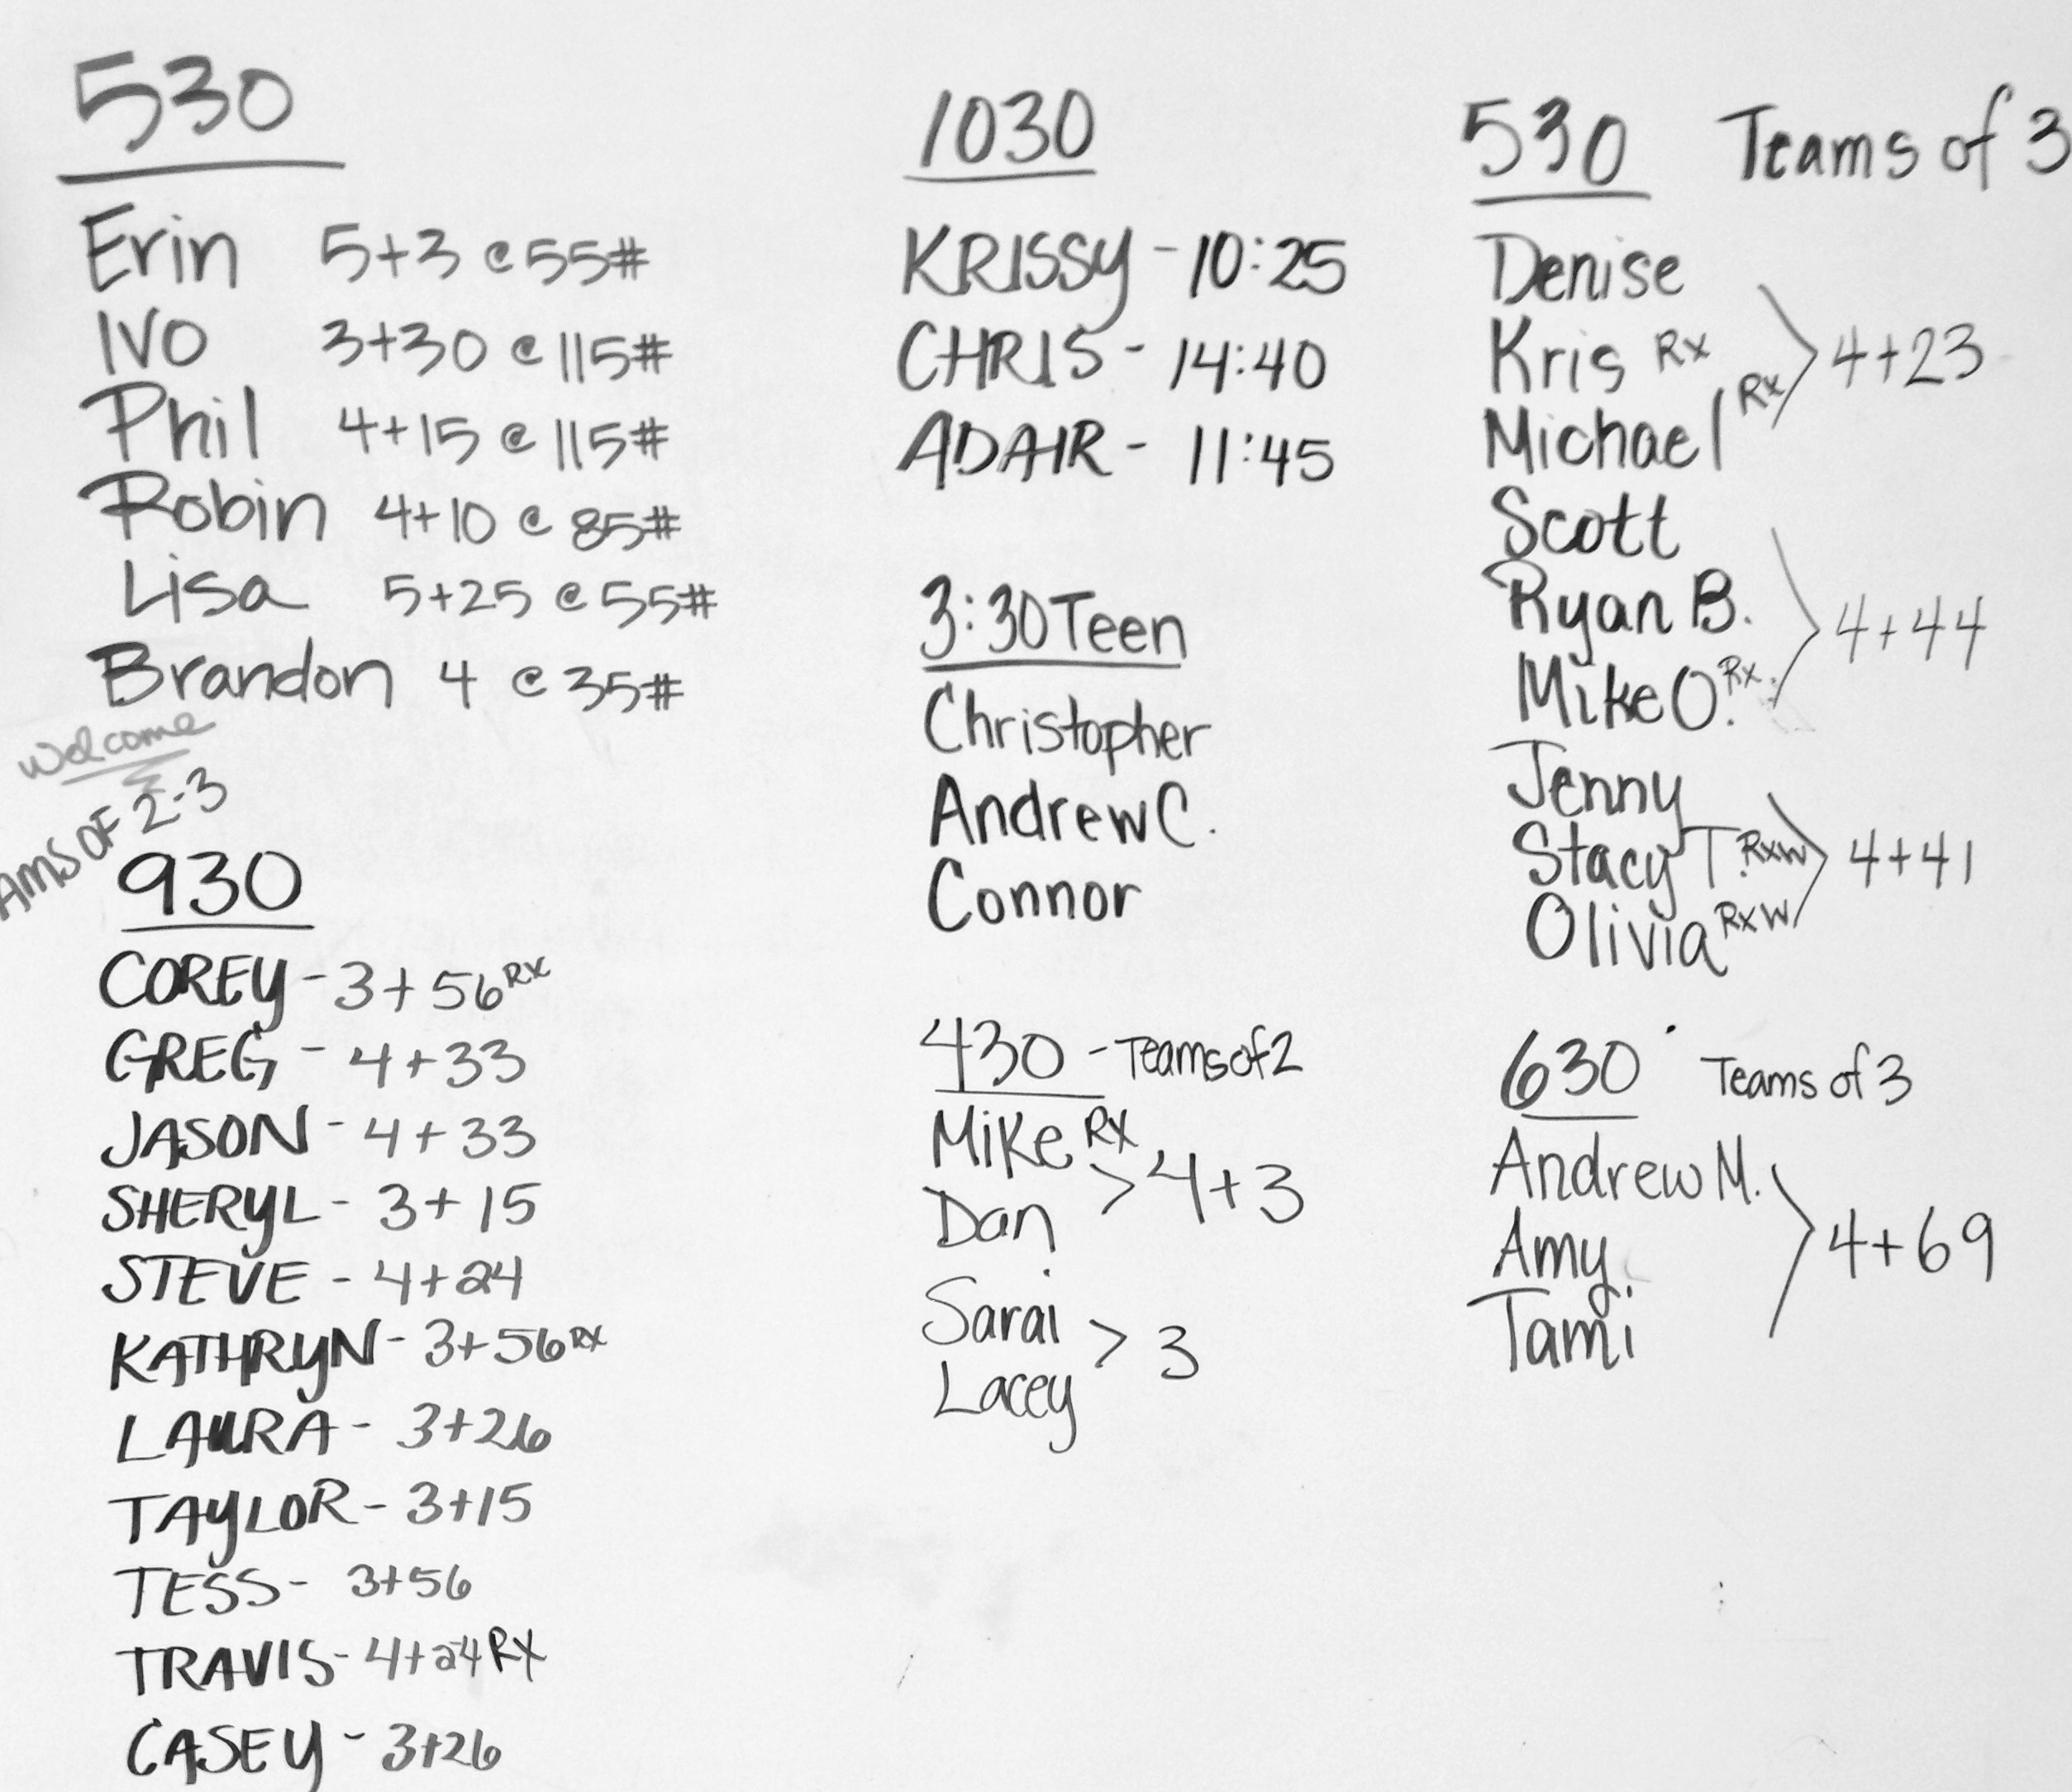 530
Erin 5+3 @ 55#
IVO 3+30 @ 115#
Phil 4+15 @ 115#
Robin 4+10 @ 85#
Lisa 5+25 @ 55#
Brandon 4 @ 35#
welcome
AMS OF 2-3
930
COREY - 3+56 RX
GREG - 4+33
JASON - 4+33
SHERYL - 3+15
STEVE - 4+24
KATHRYN - 3+56 RX
LAURA - 3+26
TAYLOR - 3+15
TESS - 3+56
TRAVIS - 4+24 RX
CASEY - 3+26
1030
KRISSY - 10:25
CHRIS - 14:40
ADAIR - 11:45
3:30 Teen
Christopher
Andrew C.
Connor
430 - Teams of 2
Mike RX
> 4+3
Dan
Sarai
> 3
Lacey
530 Teams of 3
Denise
Kris Rx > 4+23
Michael Rx
Scott
Ryan B. > 4+44
Mike O. Rx
Jenny
Stacy T. RxW > 4+41
Olivia RxW
630 Teams of 3
Andrew M.
Amy > 4+69
Tami